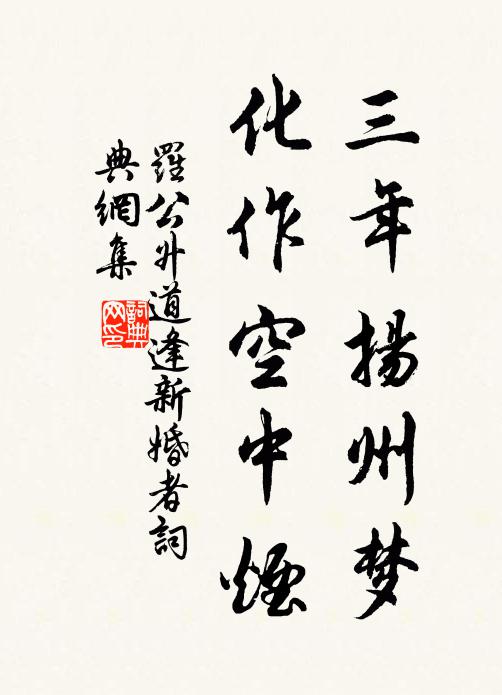 三年揚州梦
化作空中煙
羅公升道逢新婚者詞
典網集
詞典网印